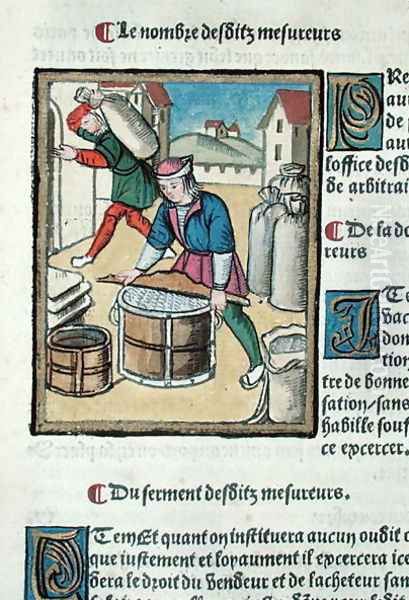 ¶Le nombre desditz mesureurs
Re
au
de
aut
loffice desd
de arbitrai
¶De la do
reurs
I Te
vac
don
tion
tre de bonne
sation/sans
habille souf
ce exercer.
¶Du serment desditz mesureurs.
I TemEt quant on instituera aucun oudit o
que iustement et loyaument il exercera ice
dera le droit du vendeur et de lacheteur san